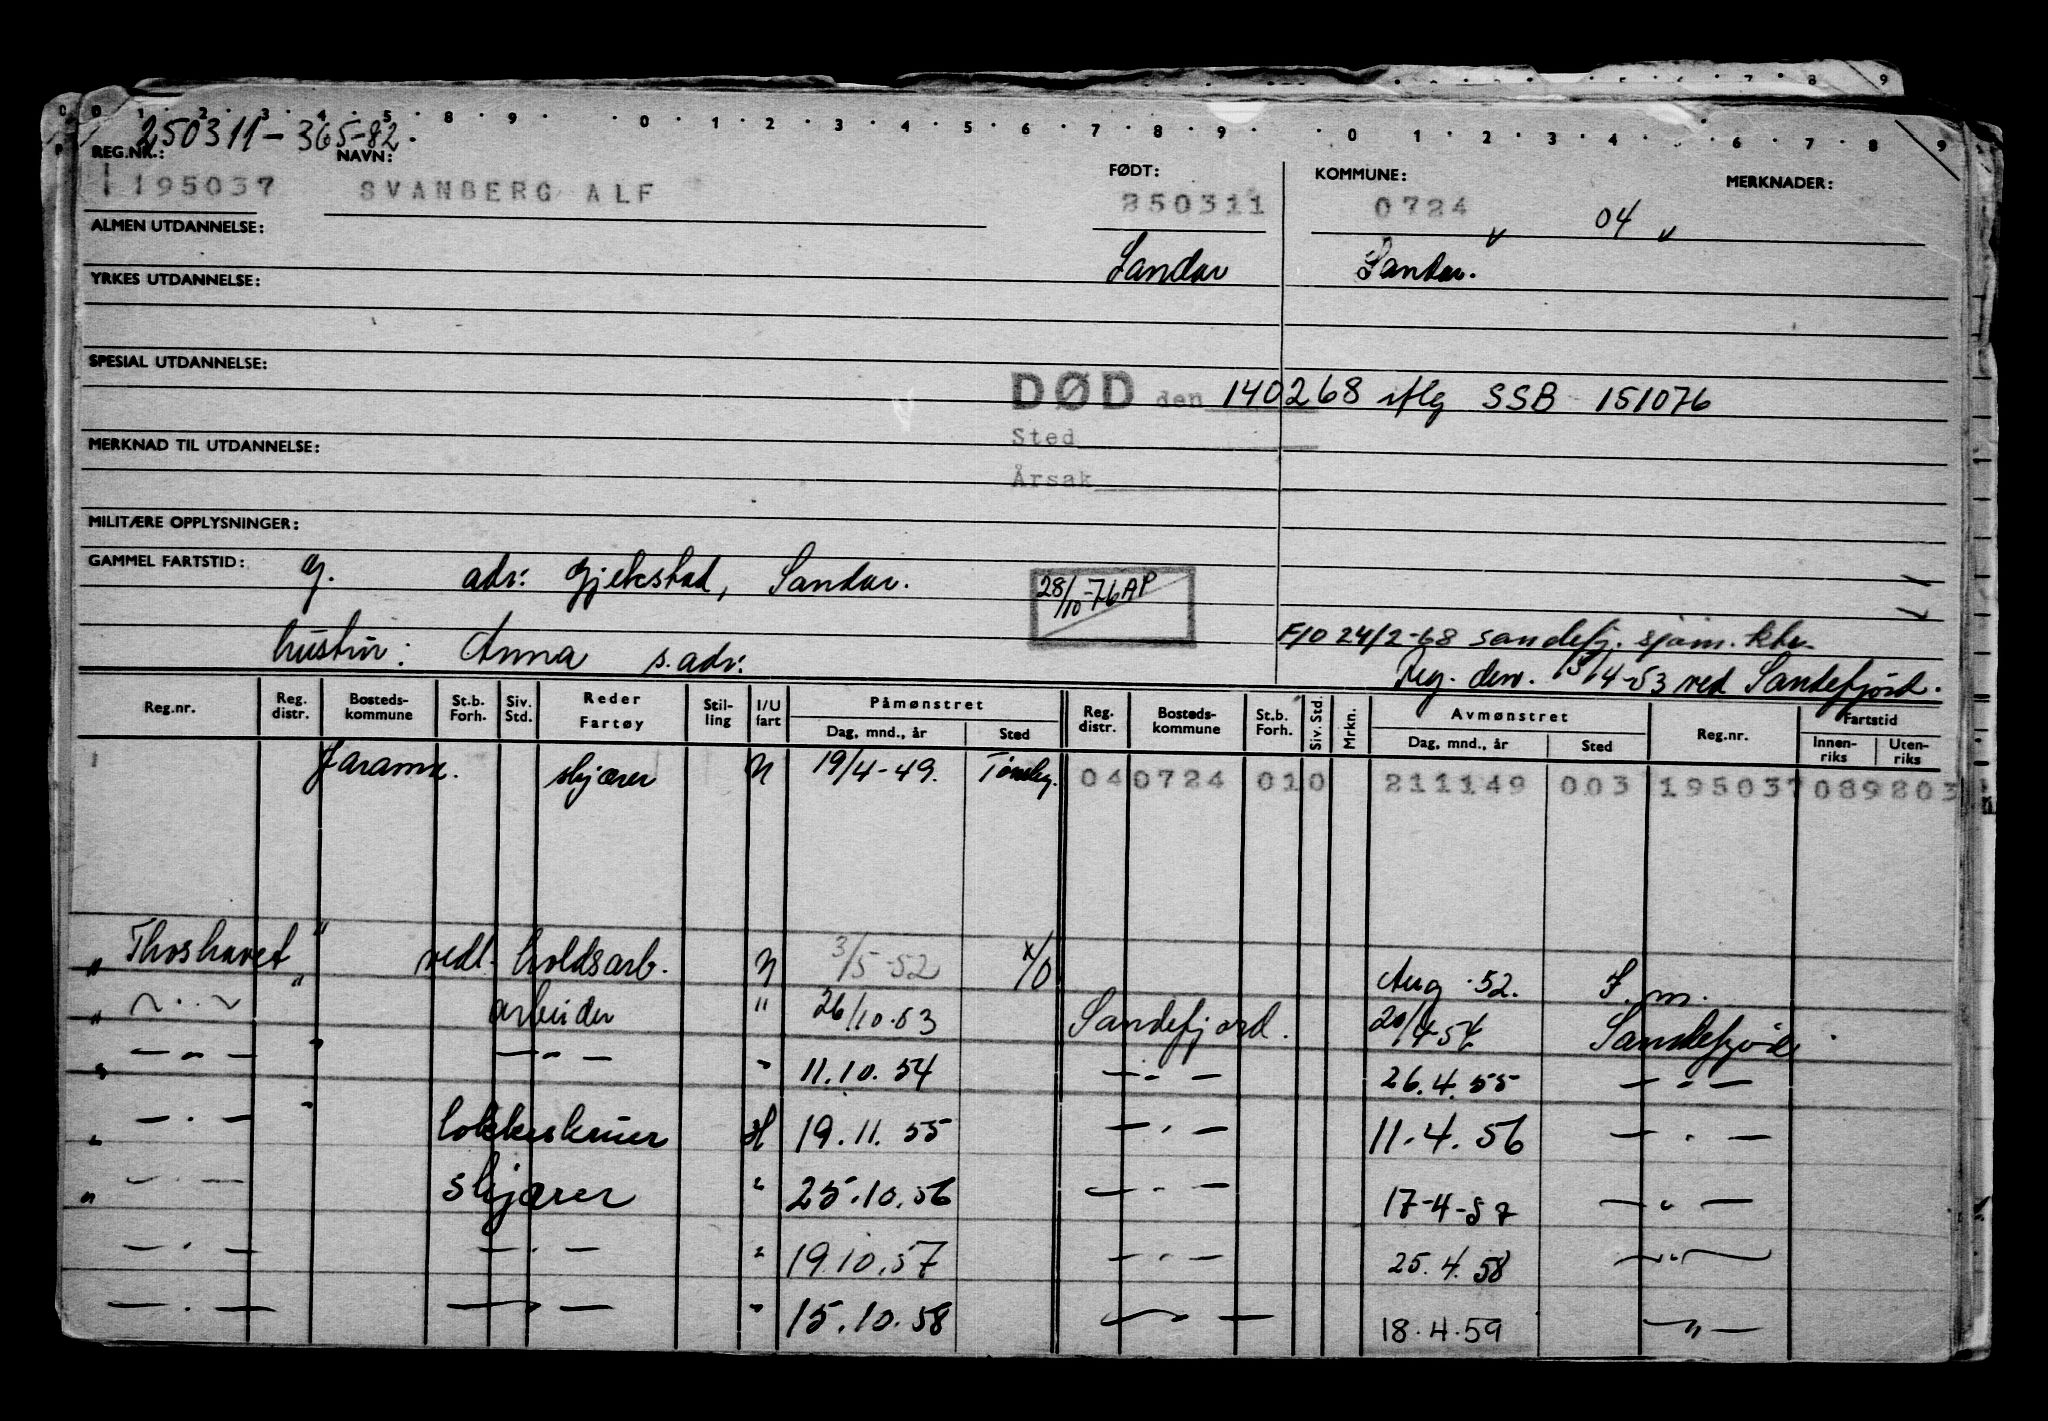 250311-365-82.
REG.NR.: NAVN: FØDT: KOMMUNE: MERKNADER:
195037 SVANBERG ALF 250311 0724 04
ALMEN UTDANNELSE:
Sandar Sandar.
YRKES UTDANNELSE:
SPESIAL UTDANNELSE:
DØD den 140268 iflg SSB 151076
Sted
MERKNAD TIL UTDANNELSE:
Årsak
MILITÆRE OPPLYSNINGER:
GAMMEL FARTSTID: g. adr: Gjekstad, Sandar. 28/10-76 AP
hustru: Anna s. adr. F10 24/2-68 sandefj. sjøm.
Reg. den. 13/4-53 ved Sandefjord.
Reg.nr. Reg. distr. Bosteds-kommune St.b. Forh. Siv. Std. Reder Fartøy Stil-ling I/U fart Påmønstret Dag, mnd., år Sted Reg. distr. Bosteds-kommune St.b. Forh. Siv. Std. Mrkn. Avmønstret Dag, mnd., år Sted Reg.nr. Fartstid Innen-riks Uten-riks
Jarama. skjærer N 19/4-49. Tønsbg. 04 0724 01 0 211149 003 195037 089803
" Thorshavet " vedl. holdsarb. N 3/5-52 Aug. 52. F. m.
" ~.~ " arbeider " 26/10.53 Sandefjord. 20/4-54 Sandefjord
" — " — " — " — " 11.10.54 — " — 26.4.55 — " —
" — . — " kokkeskriver H 19.11.55 — . — 11.4.56 — . —
" — . — skjærer " 25.10.56 — . — 17-4-57 — " —
— . — — . — " 19.10.57 — . — 25.4.58 — " —
— . — — . — " 15.10.58 — . — 18.4.59 — " —